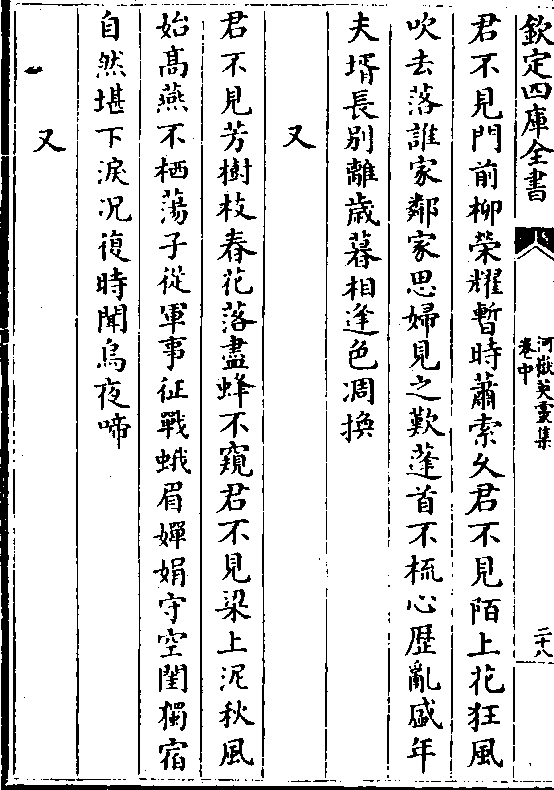 欽定四庫全書
河嶽英靈集
卷中
二十八
君不見門前柳榮耀暫時蕭索久君不見陌上花狂風
吹去落誰家鄰家思婦見之歎蓬首不梳心歷亂盛年
夫壻長別離歳暮相逢色凋換
又
君不見芳樹枝春花落盡蜂不窺君不見梁上泥秋風
始髙燕不栖蕩子從軍事征戰蛾眉嬋娟守空閨獨宿
自然堪下淚况復時聞烏夜啼
又